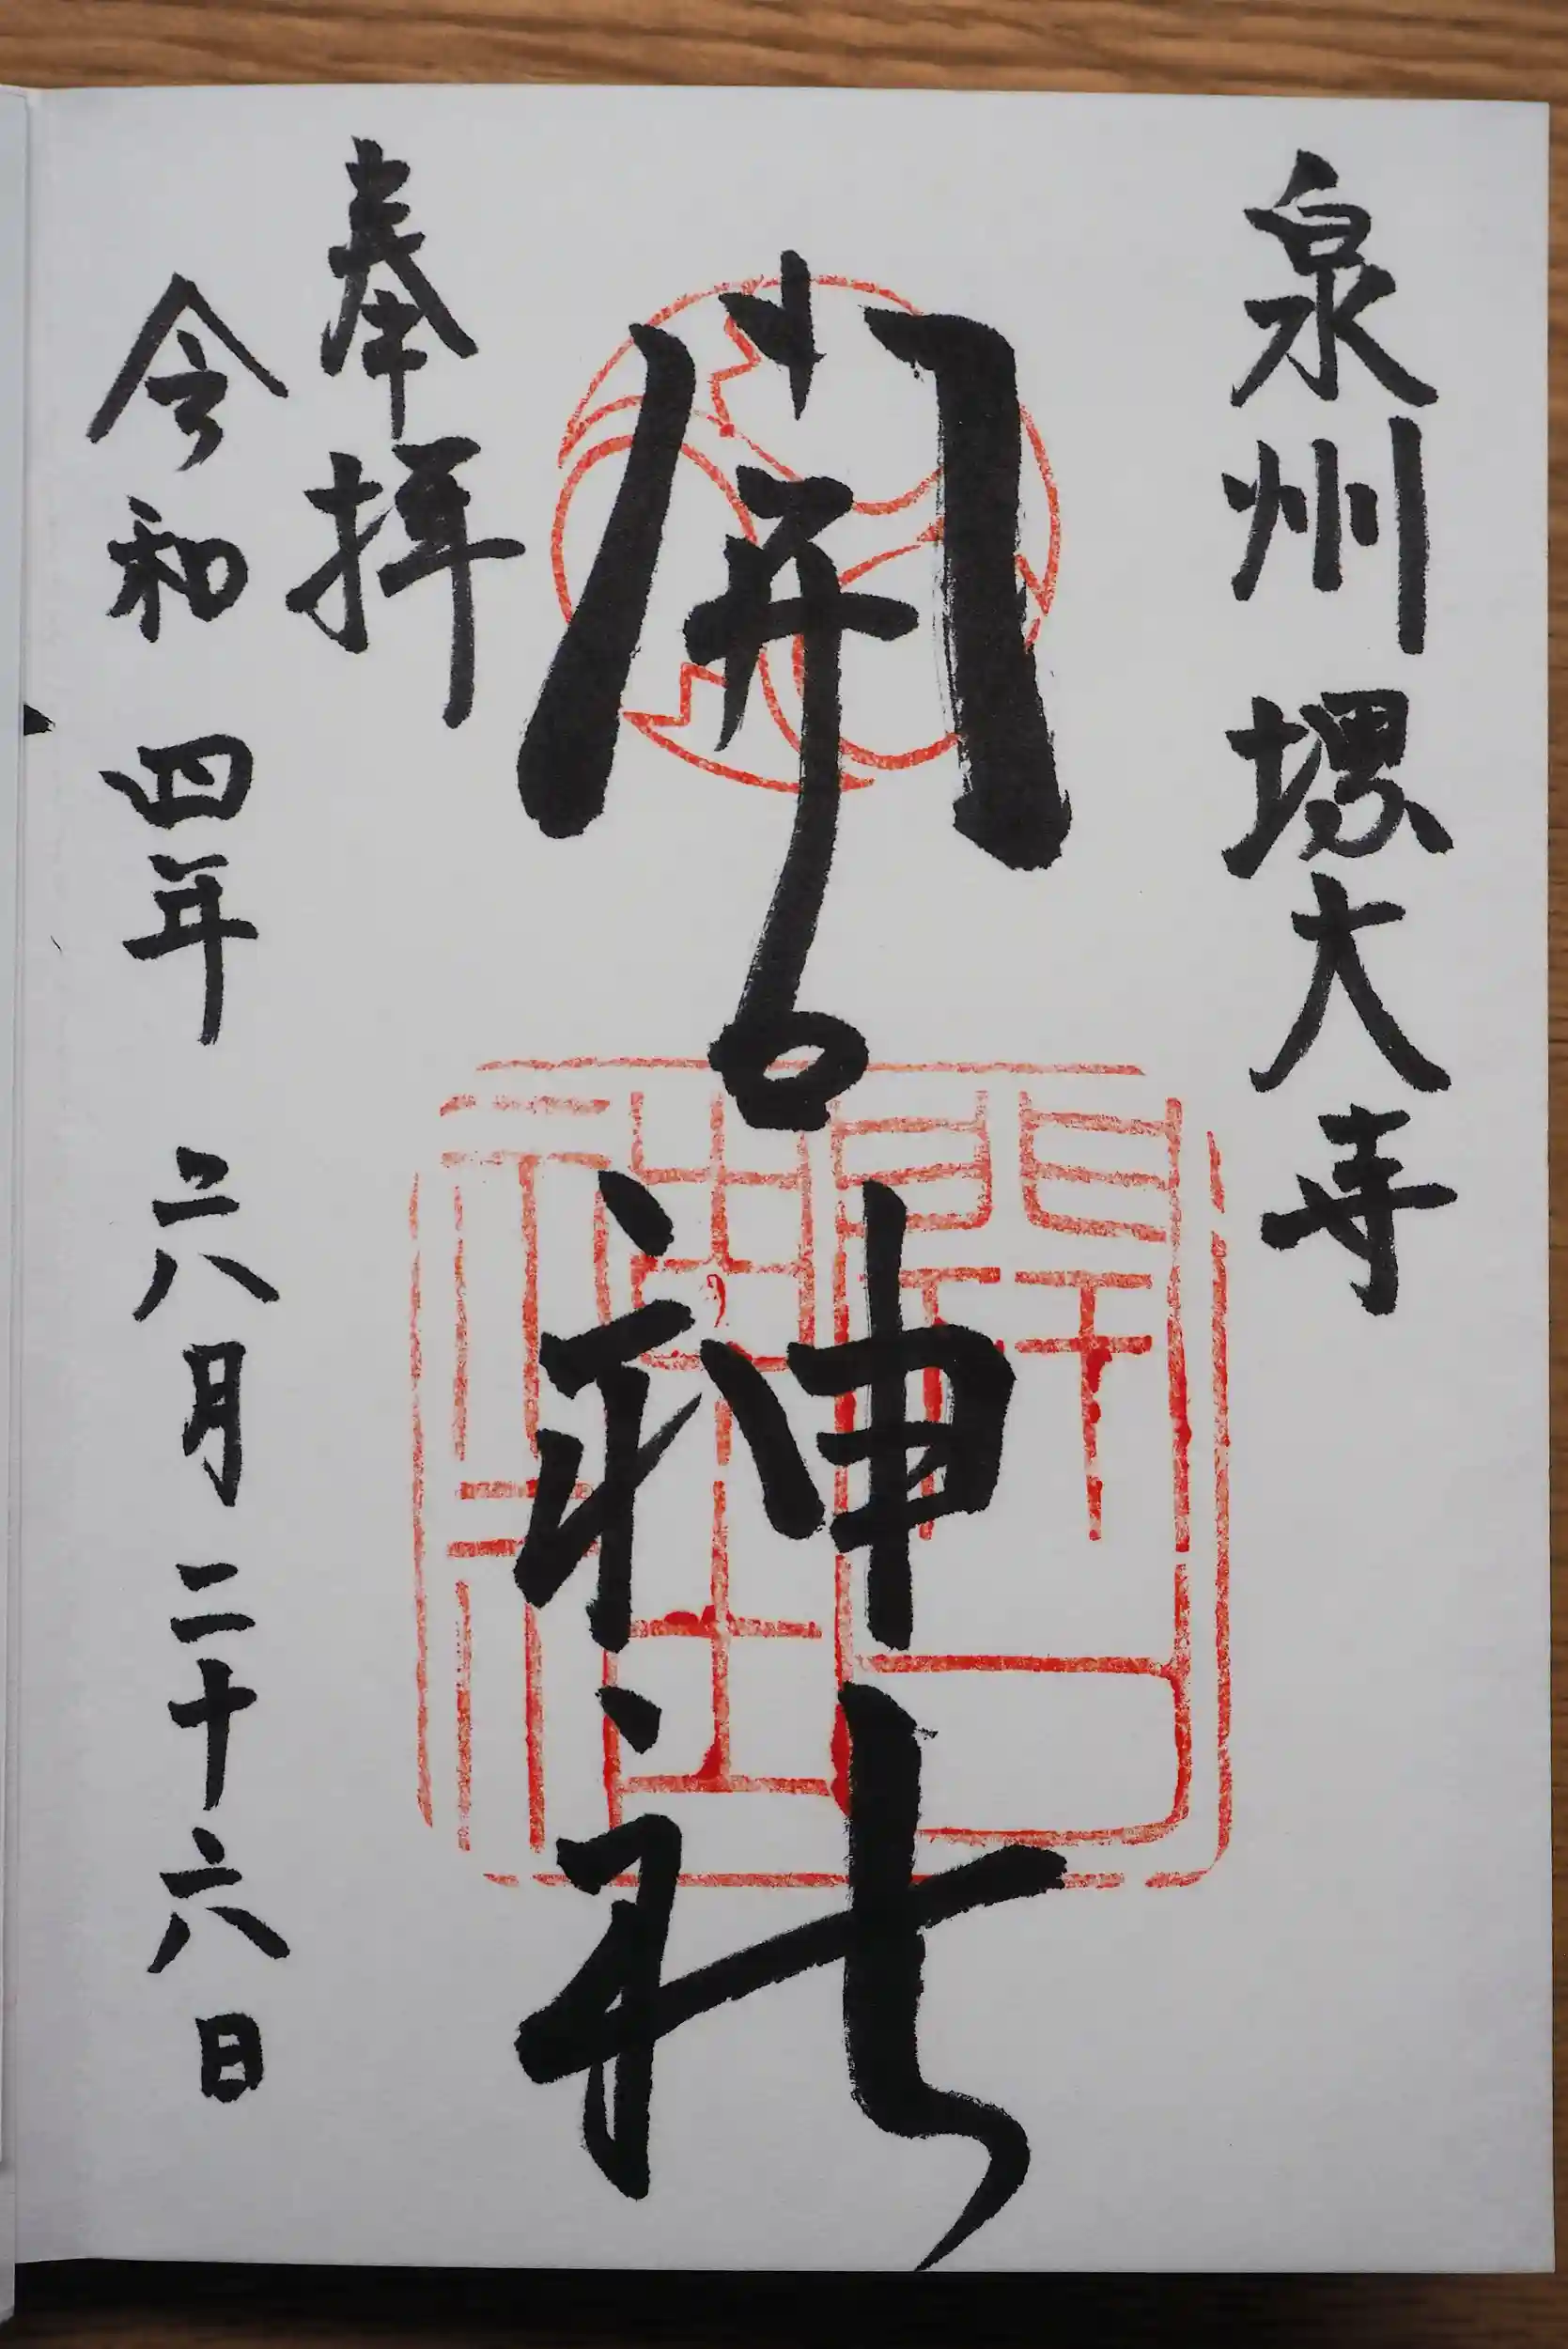 泉州 堺大寺
開口神社
開口神社
奉拝
令和四年六月二十六日